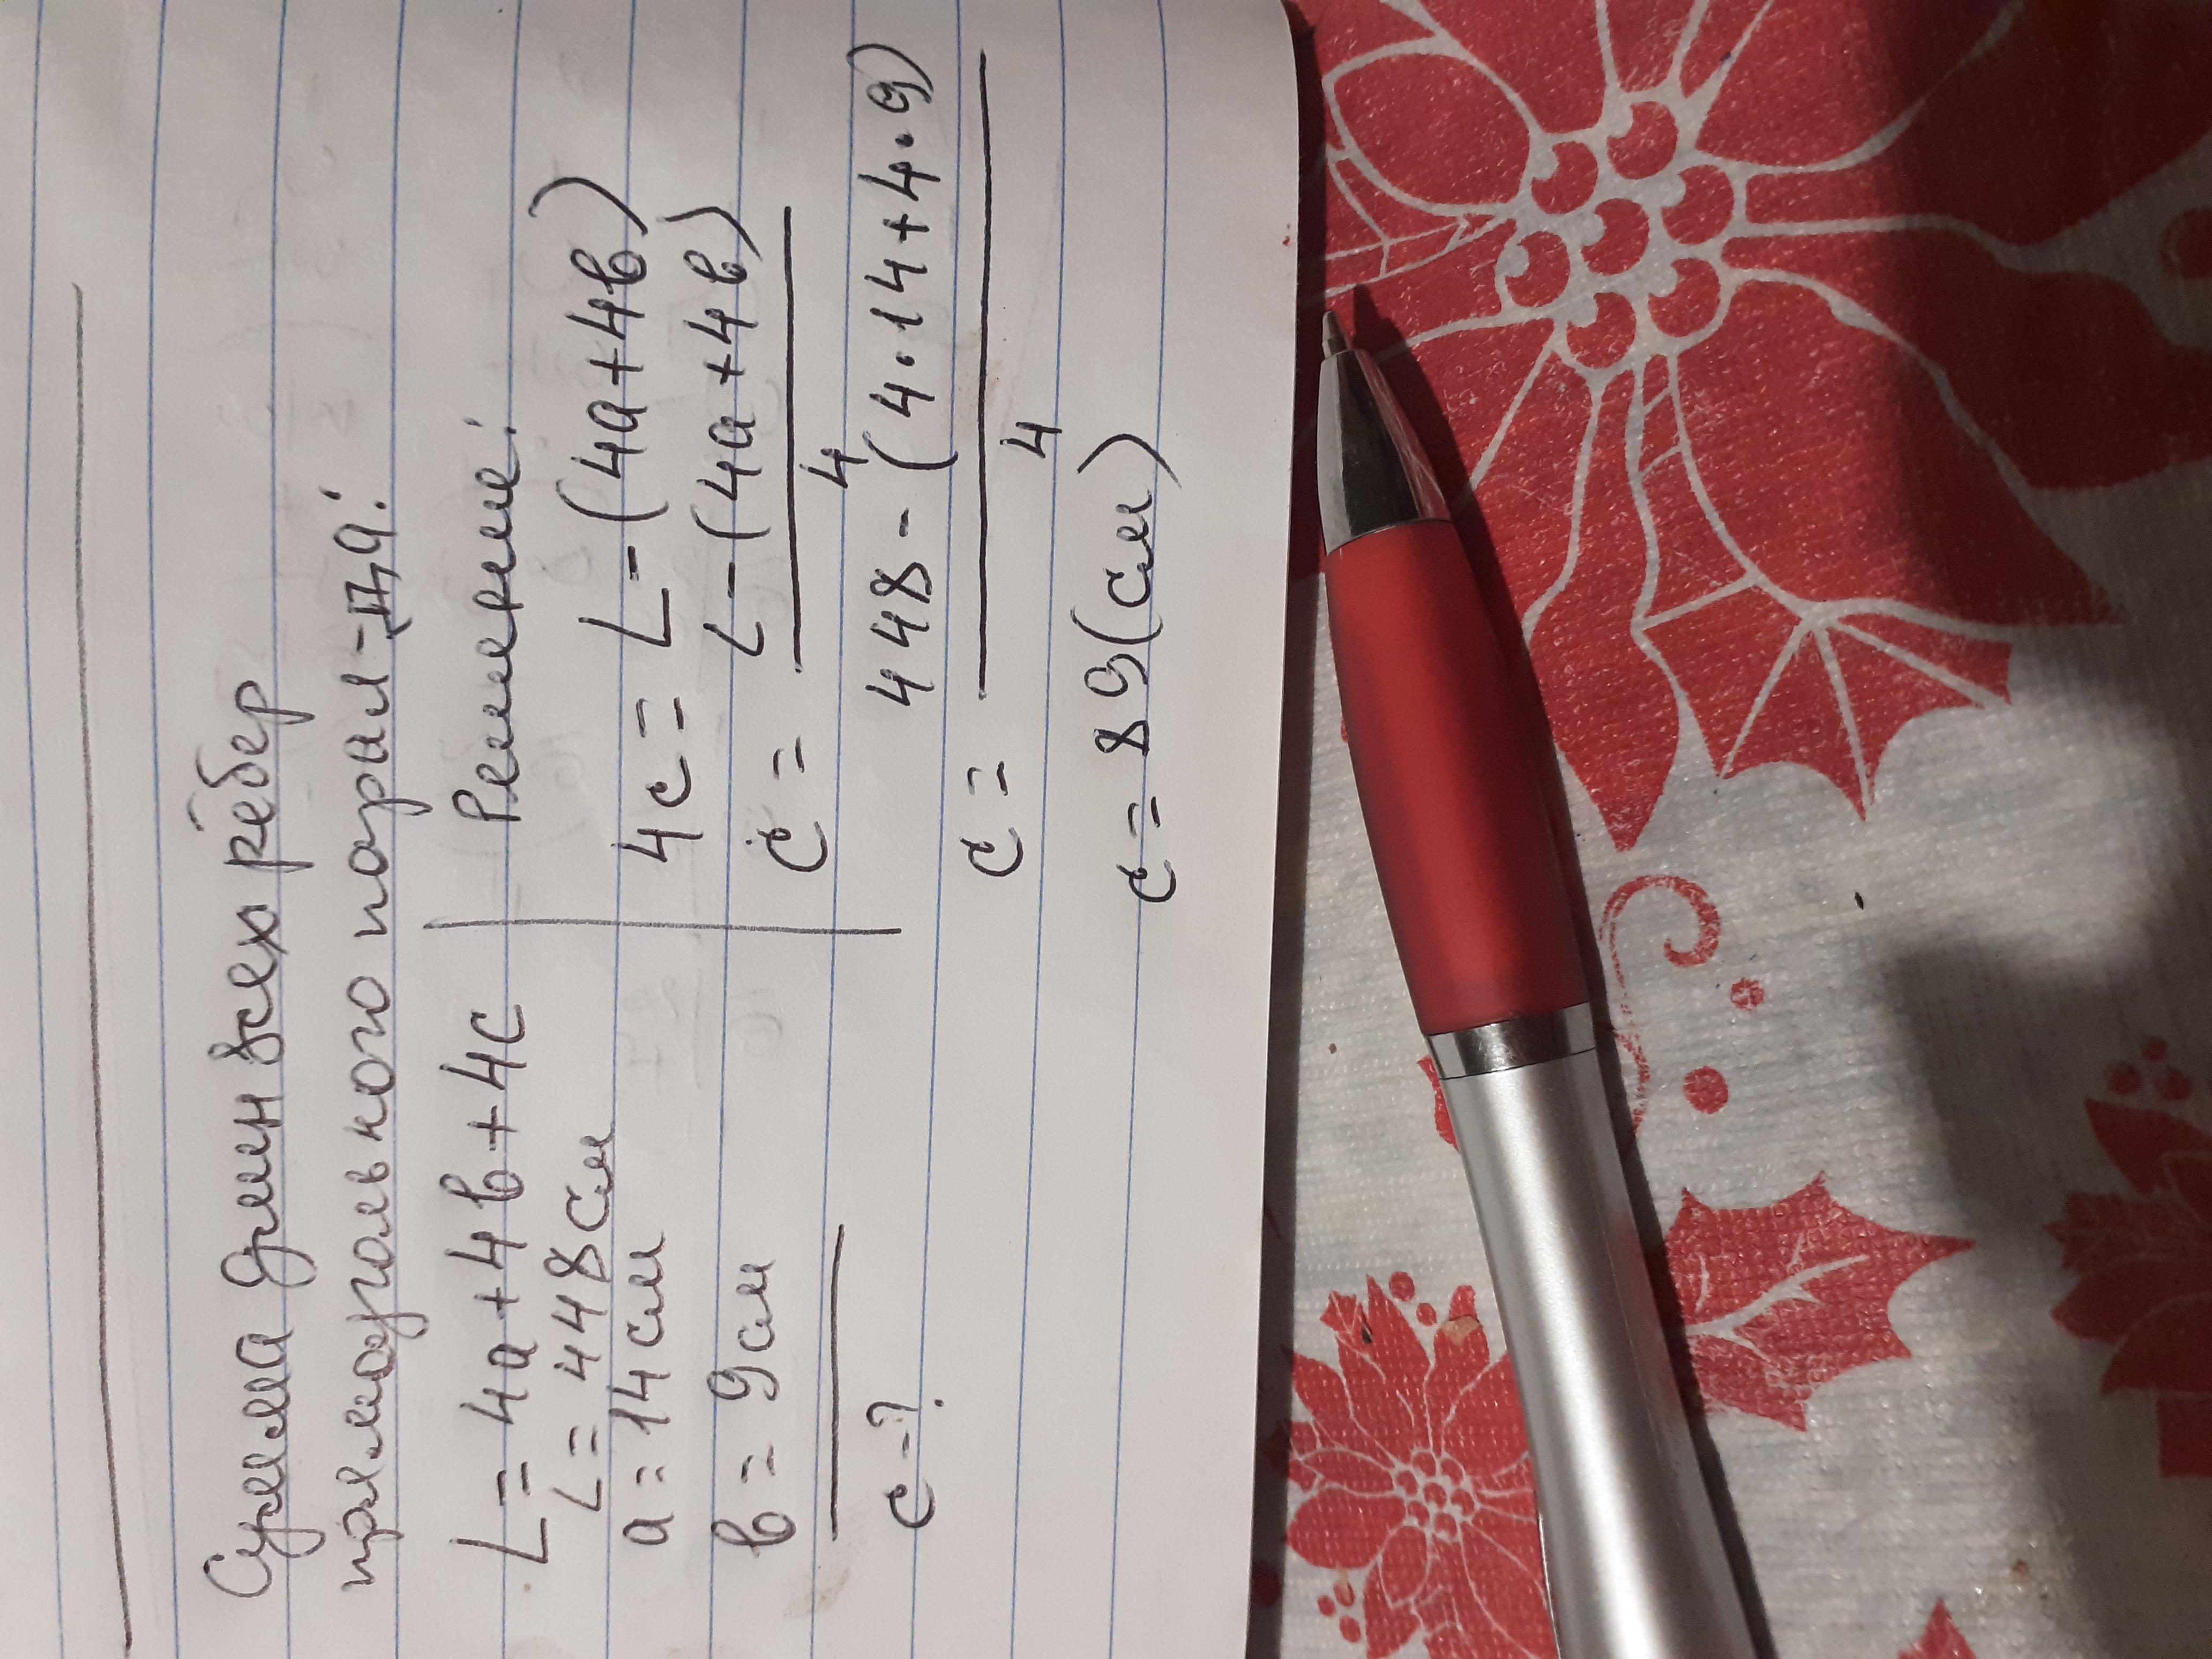 Сумма длин всех рёбер
прямоугольного парал-да:
L = 4а + 4в + 4с
L = 448см
а = 14см
в = 9см
с - ?
Решение:
4с = L - (4а + 4в)
с = L - (4а + 4в)
4
с = 448 - (4 · 14 + 4 · 9)
4
с = 89 (см)